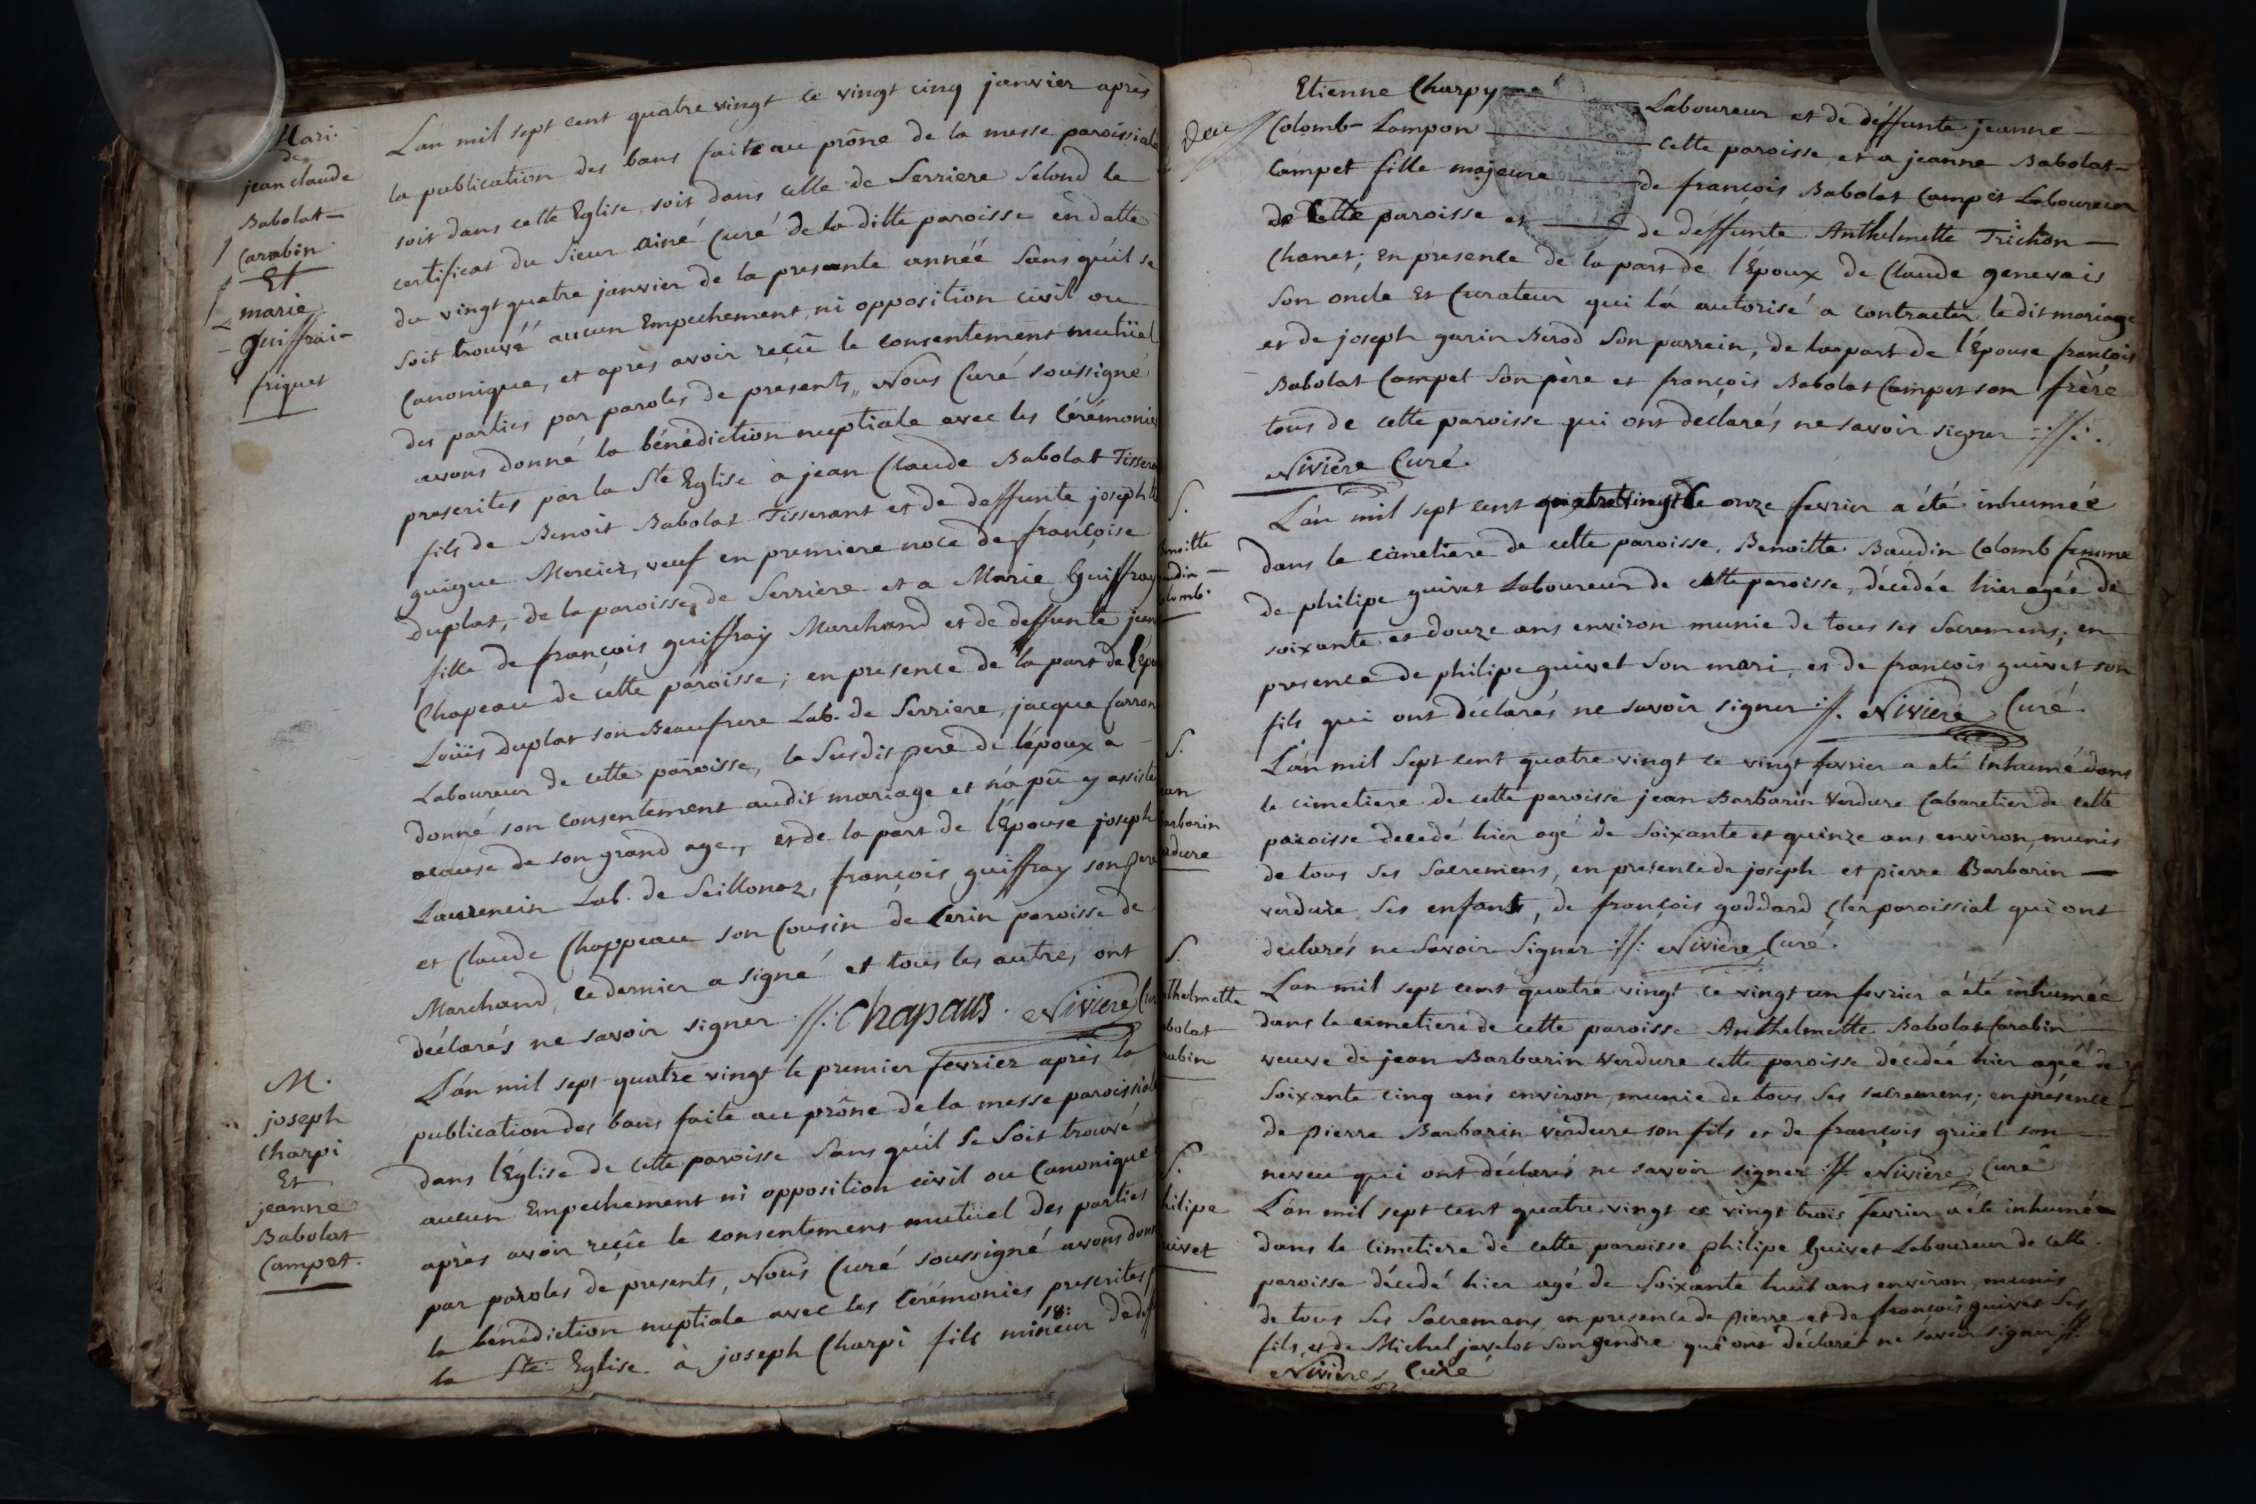 Mari.
de
jean claude
Babolat-
Carabin
Et
marie
guiffrai-
friquet
L'an mil sept cent quatre vingt ce vingt cinq janvier après
la publication des bans faite au prône de la messe paroissiale
soit dans cette Eglise, soit dans celle de Serriere Selond le
certificat du Sieur ainé Curé de la ditte paroisse en datte
du vingt quatre janvier de la presante année Sans qu'il se
soit trouvé aucun Empechement, ni opposition civil ou
Canonique, et après avoir reçû le consentement mutüel
des parties par paroles de présents, Nous Curé soussigné
avons donné la bénédiction nuptiale avec les Cérémonies
prescrites par la Ste Eglise à jean Claude Babolat Tisseran
fils de Benoit Babolat Tisserant et de deffunte josephte
guigue Mercier, veuf en premiere noce de françoise
duplat, de la paroisse de Serriere et a Marie Guiffray
fille de françois guiffray Marchand et de deffunte jean
Chapeau de cette paroisse; en presence de la part de l'Epou
Loüis duplat son Beaufrere Lab. de Serriere, jacque Carron
Laboureur de cette paroisse, le Susdit pere de l'époux a
donné son consentement audit mariage et n'a pû y assiste
acause de son grand age, et de la part de l'Epouse joseph
Laurencin Lab. de Seillonaz, françois guiffray son pere
et Claude Chappeau son Cousin de Cerin paroisse de
Marchand, ce dernier a signé et tous les autres ont
déclarés ne savoir signer ://: Chapaus. Niviere Cur
M.
joseph
Charpi
Et
jeanne
Babolat
Campet.
L'an mil sept quatre vingt le premier fevrier après la
publication des bans faite au prône de la messe paroissial
dans l'Eglise de cette paroisse Sans qu'il se Soit trouvé
aucun Empechement ni opposition civil ou Canonique
après avoir reçû le consentement mutüel des parties
par paroles de presents, Nous Curé soussigné avons donn
la bénédiction nuptiale avec les Cérémonies prescrites
la Ste Eglise à joseph Charpi fils mineur de deff
18:
Etienne Charpy Laboureur et de déffunte jeanne
Colomb-Lampon cette paroisse et a jeanne Babolat-
Campet fille majeure de françois Babolat Campet Laboureur
de Cette paroisse et de deffunte Anthelmette Trichon
Chanet; En presence de la part de l'Epoux de Claude genevais
Son oncle Et Curateur qui l'a autorisé a contracter le dit mariage
et de joseph garin Berod Son parrein, de la part de l'Epouse françois
Babolat Campet Son père et françois Babolat Campet son frère
tous de cette paroisse qui ont déclarés ne savoir signer ://:.
Nivière Curé.
S.
enoitte
udin
lomb.
L'an mil sept cent quatrevingt le onze fevrier a été inhumée
dans le cimetiere de cette paroisse, Benoitte Baudin Colomb femme
de philipe guivet Laboureur de cette paroisse, décédée hier agée de
soixante et douze ans environ munie de tous ses Sacremens; en
presence de philipe guivet Son mari, et de françois guivet son
fils qui ont déclarés ne savoir signer ://. Niviere Curé.
S.
ean
arbarin
rdure
L'an mil Sept cent quatre vingt ce vingt fevrier a eté Inhumé dans
le cimetiere de cette paroisse jean Barbarin Verdure Cabaretier de cette
paroisse decedé hier agé de Soixante et quinze ans environ, munis
de tous Ses Sacremens, en presence de joseph et pierre Barbarin
verdure Ses enfants, de françois goddard Cler paroissial qui ont
declarés ne Savoir Signer ://: Niviere Curé.
S.
nthelmette
bolat
rabin
L'an mil sept cent quatre vingt ce vingt un fevrier a été inhumée
dans le cimetiere de cette paroisse Anthelmette Babolat Carabin
veuve de jean Barbarin Verdure cette paroisse décedée hier agée de
Soixante cinq ans environ, munie de tous Ses sacremens; en présence
de pierre Barbarin verdure son fils et de françois grüel son
neveu qui ont déclarés ne savoir signer ://. Niviere Curé
S.
hilipe
uivet
L'an mil sept cent quatre vingt ce vingt trois fevrier a été inhumé
dans le Cimetiere de cette paroisse philipe Guivet Laboureur de cette
paroisse décedé hier agé de Soixante huit ans environ, munis
de tous Ses Sacremens en presence de pierre et de françois guivet Ses
fils, et de Michel javelot Son gendre qui ont déclarés ne savoir signer //.
Niviere Curé